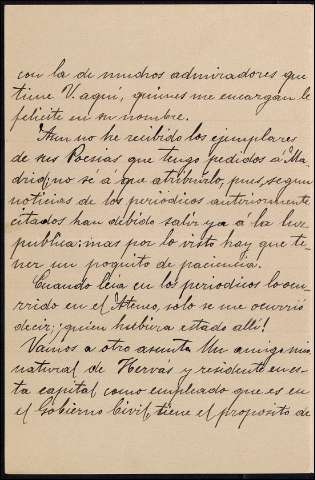 con la de muchos admiradores que
tiene V. aquí, quienes me encargan le
felicite en su nombre.
Aun no he recibido los ejemplares
de sus Poesias que tengo pedidos á Ma
drid, no sé á que atribuirlo, pues, segun
noticias de los periodicos anteriormente
citados han debido salir ya á la luz
publica: mas por lo visto hay que te-
ner un poquito de paciencia.
Cuando leia en los periodicos lo ocu-
rrido en el Ateneo, solo se me ocurrió
decir; ¡quien hubiera estado allí!
Vamos a otro asunto. Un amigo mio
natural de Hervas y residente en es-
ta capital como empleado que es en
el Gobierno Civil, tiene el proposito de